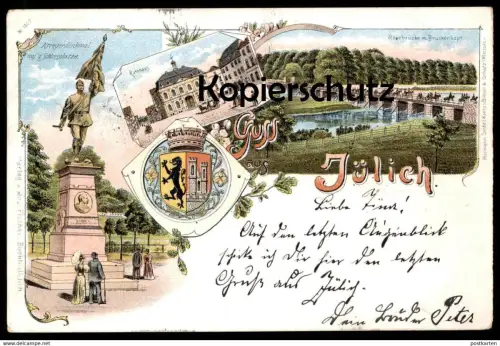 Kriegerdenkmal
auf d. Schlossplatze.
Rathaus
Rurbrücke m. Brückenkopf
Kopierschutz
Gruss
aus
Jülich.
Liebe Tina!
Auf den letzten Augenblick
schicke ich Dir hier den letzten
Gruß aus Jülich.
Dein Bruder Peter
postkarten